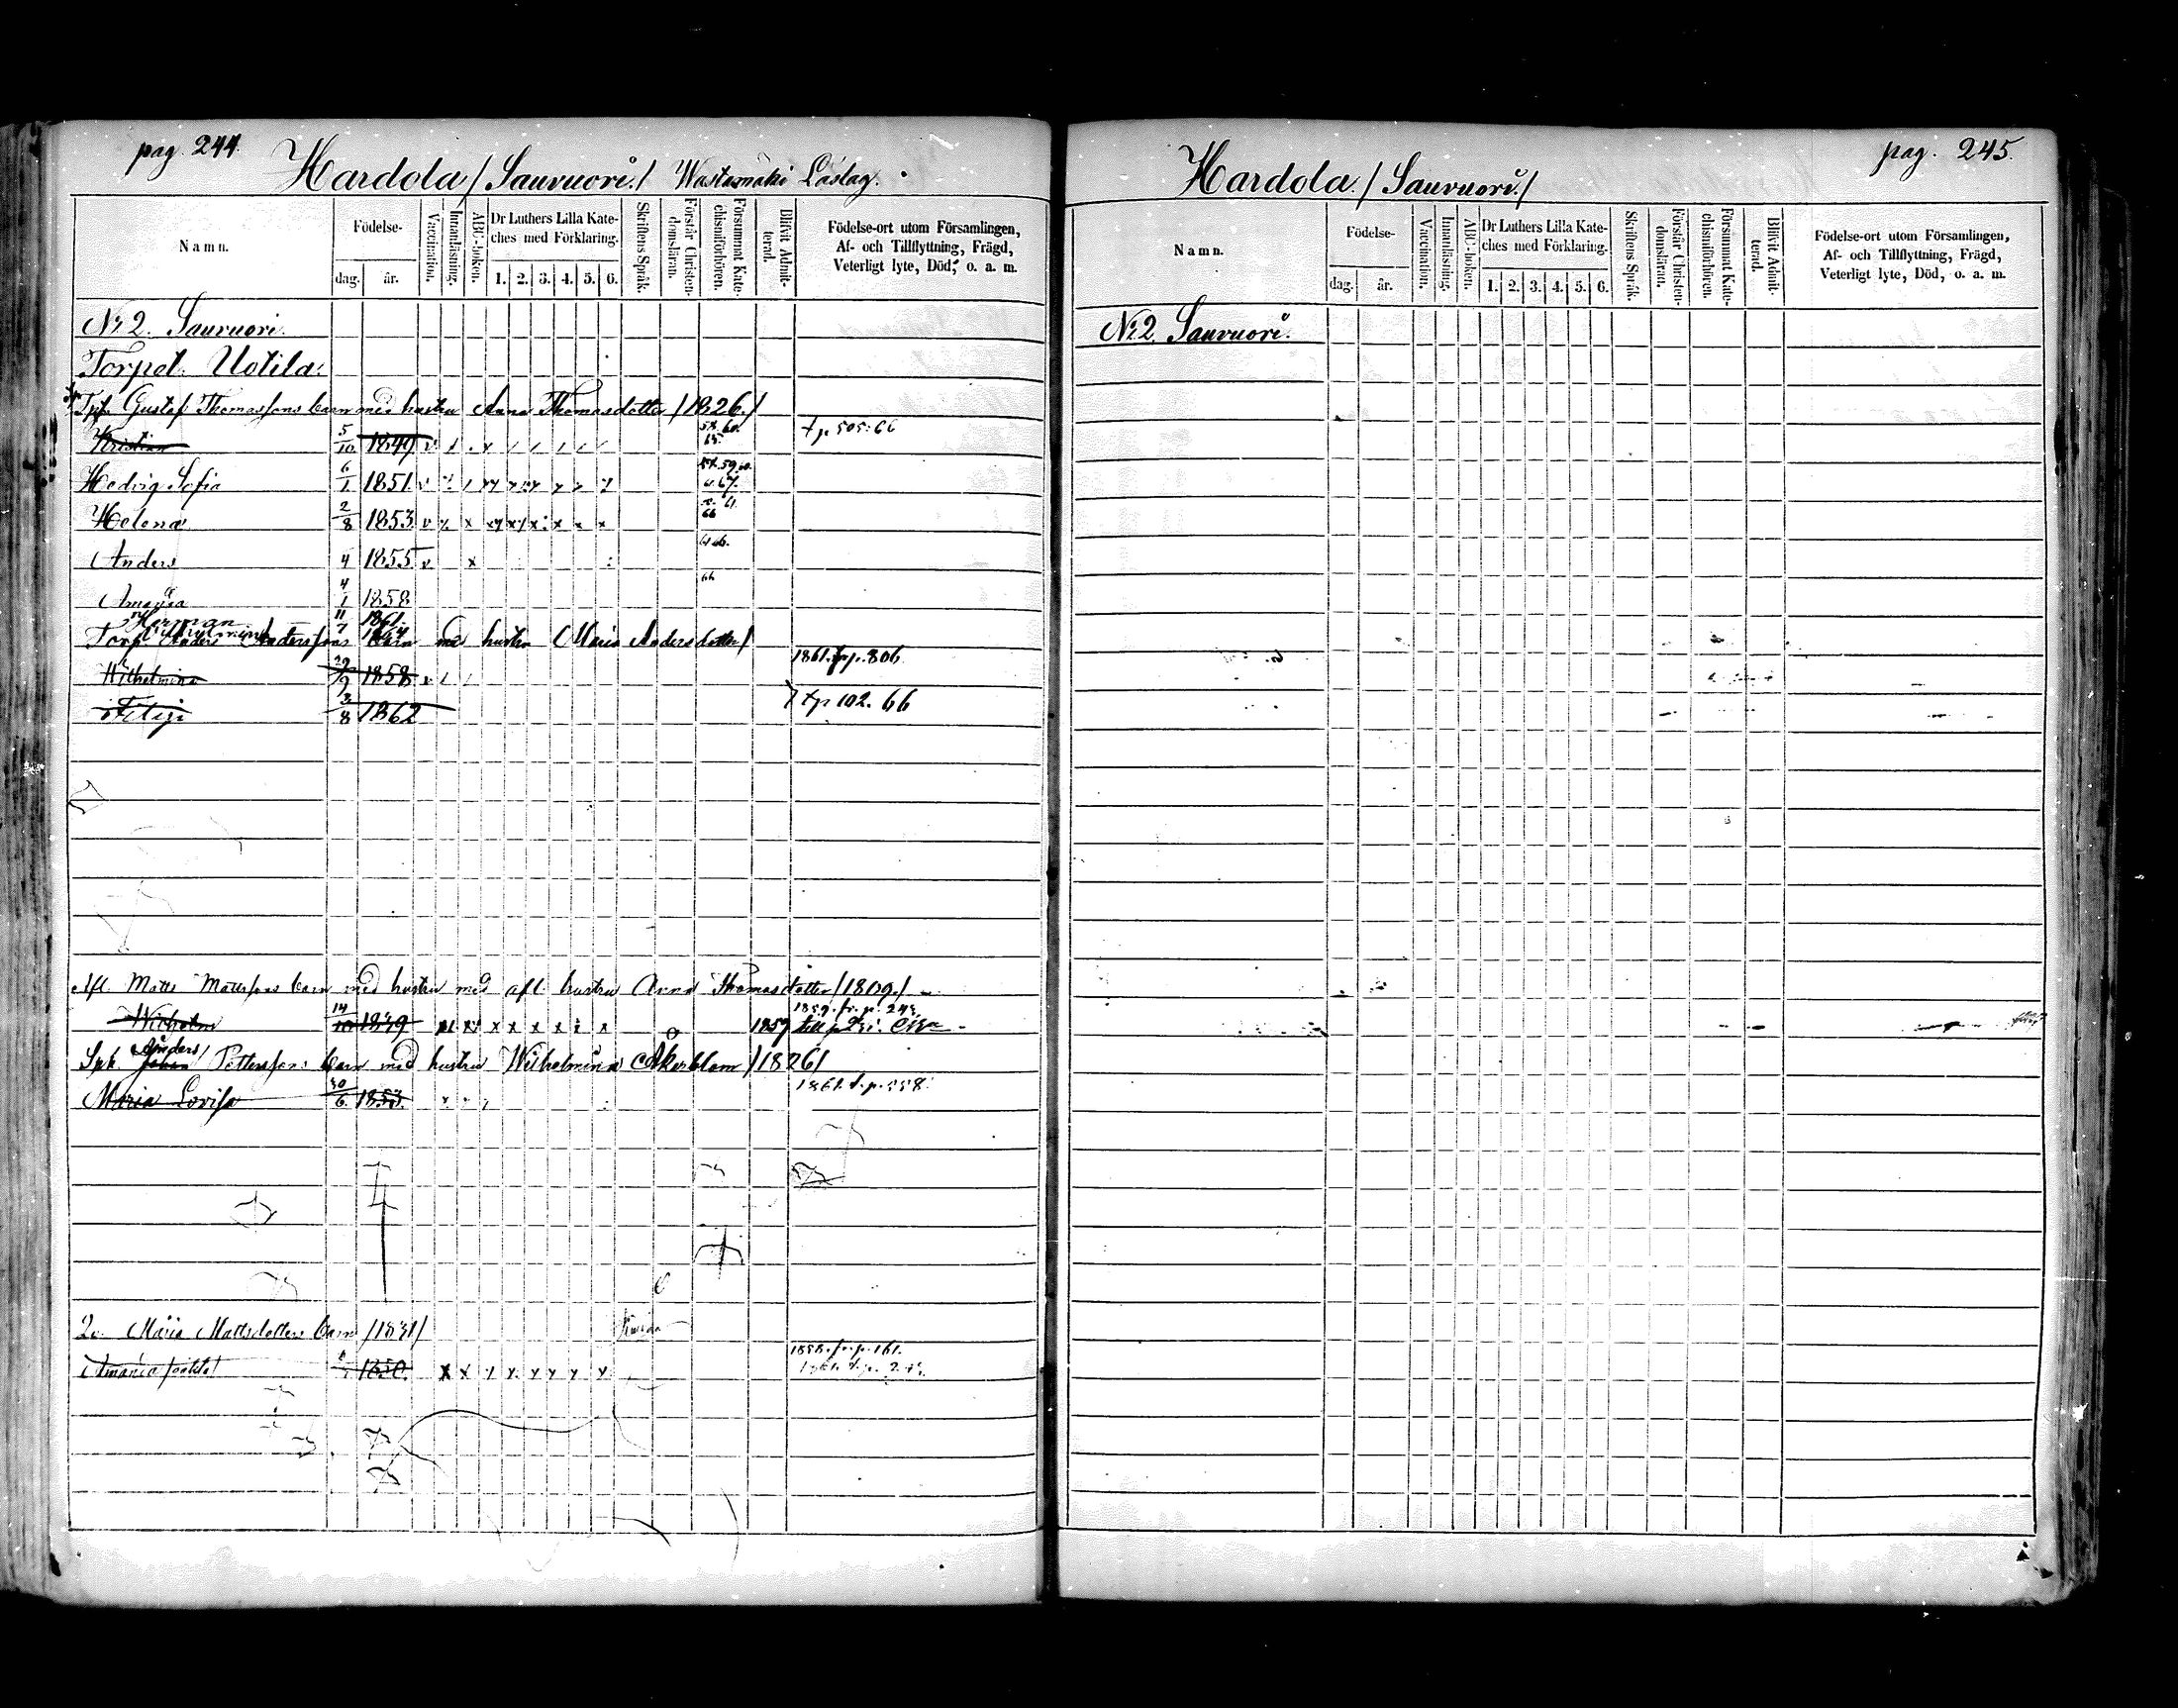 pag. 244.
Hardola / Sauvuori. / Wastamäki Läslag.
Namn.
Födelse-
dag.
år.
Vaccination.
Innanläsning.
ABC-boken.
Dr Luthers Lilla Kate-
ches med Förklaring.
1. 2. 3. 4. 5. 6.
Skriftens Språk.
Förstår Christen-
domsläran.
Försummat Kate-
chismiförhören.
Blifvit Admit-
terad.
Födelse-ort utom Församlingen,
Af- och Tillflyttning, Frägd,
Veterligt lyte, Död, o. a. m.
No 2. Sauvuori.
Torpet: Uotila:
Gustaf Thomassons barn med hustru Anna Thomasdotter /1826./
Kristina 5/10 1849 v 58. 60. 65. t. p. 505: 66
Hedvig Sofia 6/1 1851 v
Helena 2/8 1853 v x 66
Anders 4 1855 v x
Amanda 4/1 1858 66
Herman 11 1861.
Wilhelmina 7 1864
Torp. Anders Anderssons barn med hustru Maria Andersdotter/
Wilhelmina 29/9 1858 v 1861. fr. p. 306
Filip 3/8 1862 t. p. 102. 66
Afl. Matts Mattssons barn med hustru med afl. hustru Anna Thomasdotter /1809./
Wilhelm 14/10 1839 x x x x x x 1859 1859. fr. p. 243.
Anders/
Johan Petterssons barn med hustru Wilhelmina Åkerblom /1826/
Maria Lovisa 30/6 1853. 1861. t. p. 558.
Maria Mattsdotters barn /1831/
Amanda 1850. x x 1858. fr. p. 161.
pag. 245.
Hardola. / Sauvuori. /
Namn.
Födelse-
dag.
år.
Vaccination.
Innanläsning.
ABC-boken.
Dr Luthers Lilla Kate-
ches med Förklaring.
1. 2. 3. 4. 5. 6.
Skriftens Språk.
Förstår Christen-
domsläran.
Försummat Kate-
chismiförhören.
Blifvit Admit-
terad.
Födelse-ort utom Församlingen,
Af- och Tillflyttning, Frägd,
Veterligt lyte, Död, o. a. m.
No 2 Sauvuori.